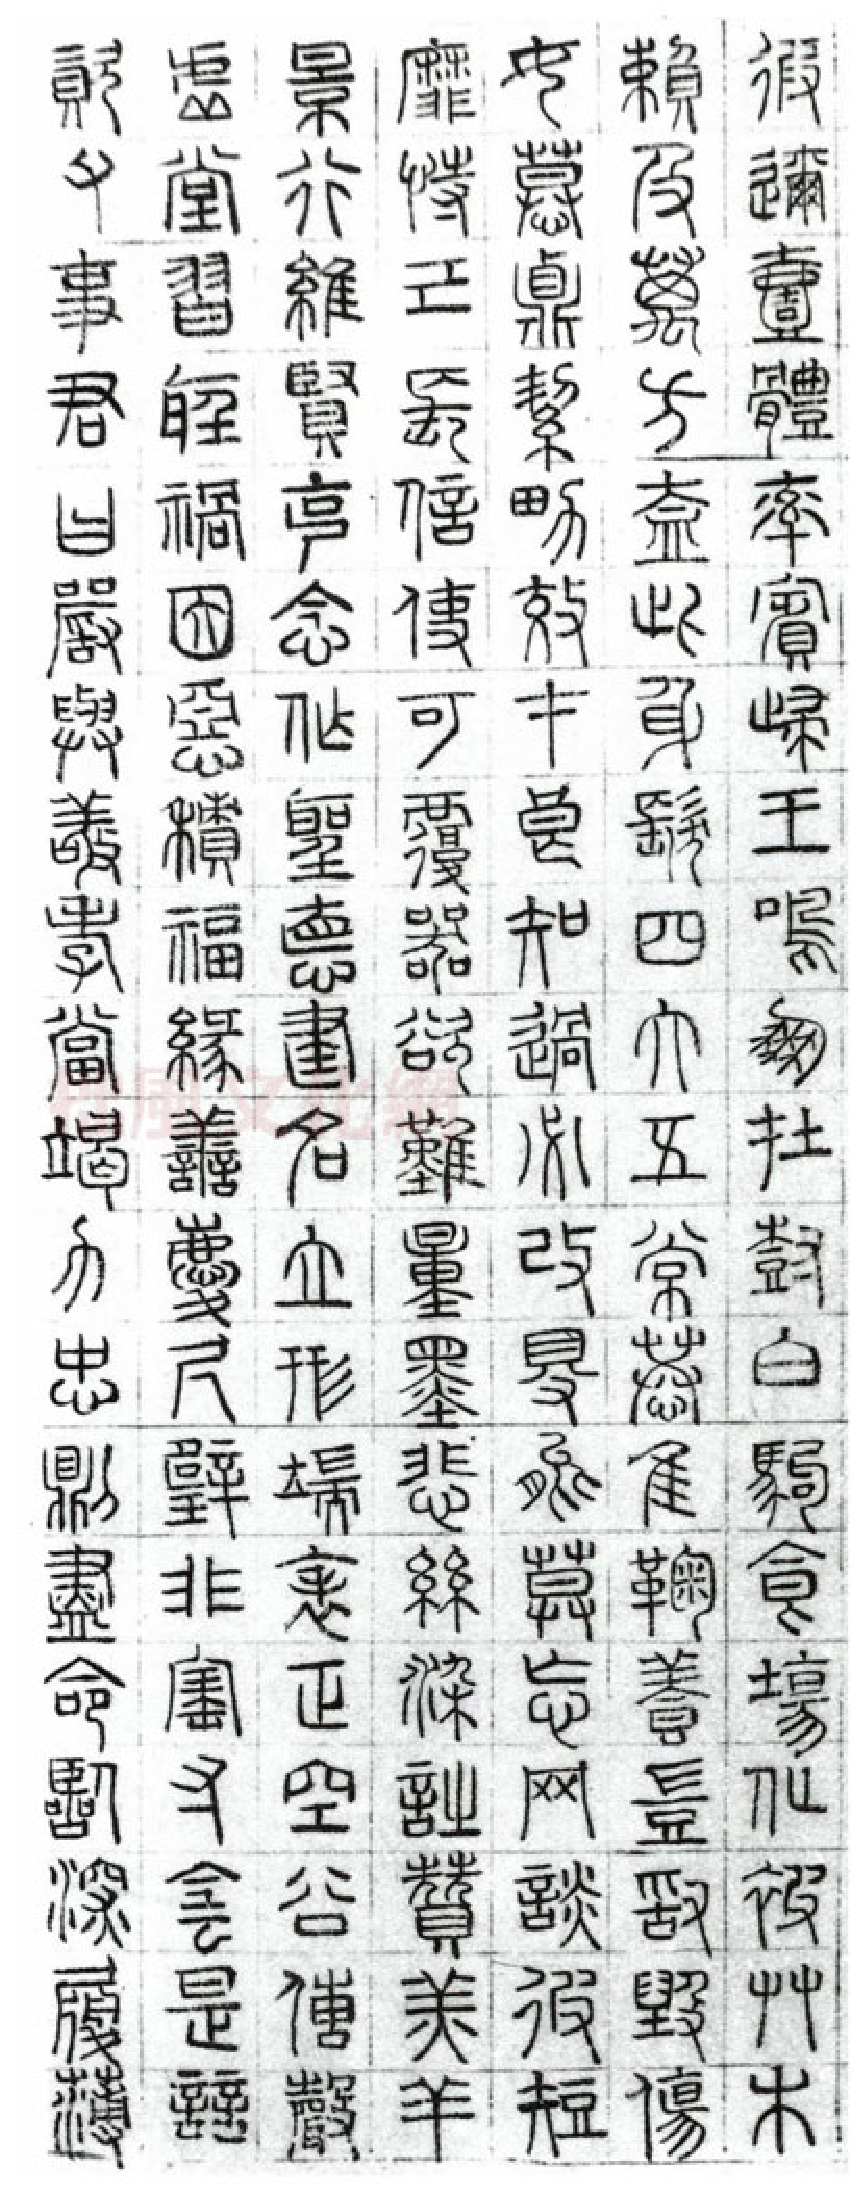 遐邇壹體率賓歸王鳴鳳在樹白駒食場化被艸木
賴及萬方蓋此身髮四大五常恭隹鞠養豈敢毀傷
女慕貞絜男效才良知過必改得能莫忘网談彼短
靡恃己長信使可覆器欲難量墨悲絲染詩贊羔羊
景行維賢克念作聖德建名立形端表正空谷傳聲
虛堂習聽禍因惡積福緣善慶尺璧非寶寸陰是競
資父事君曰嚴與敬孝當竭力忠則盡命臨深履薄
風文化網